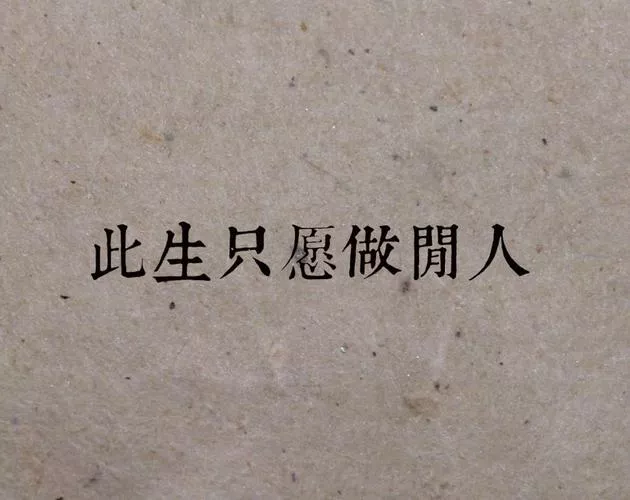 此生只愿做閒人